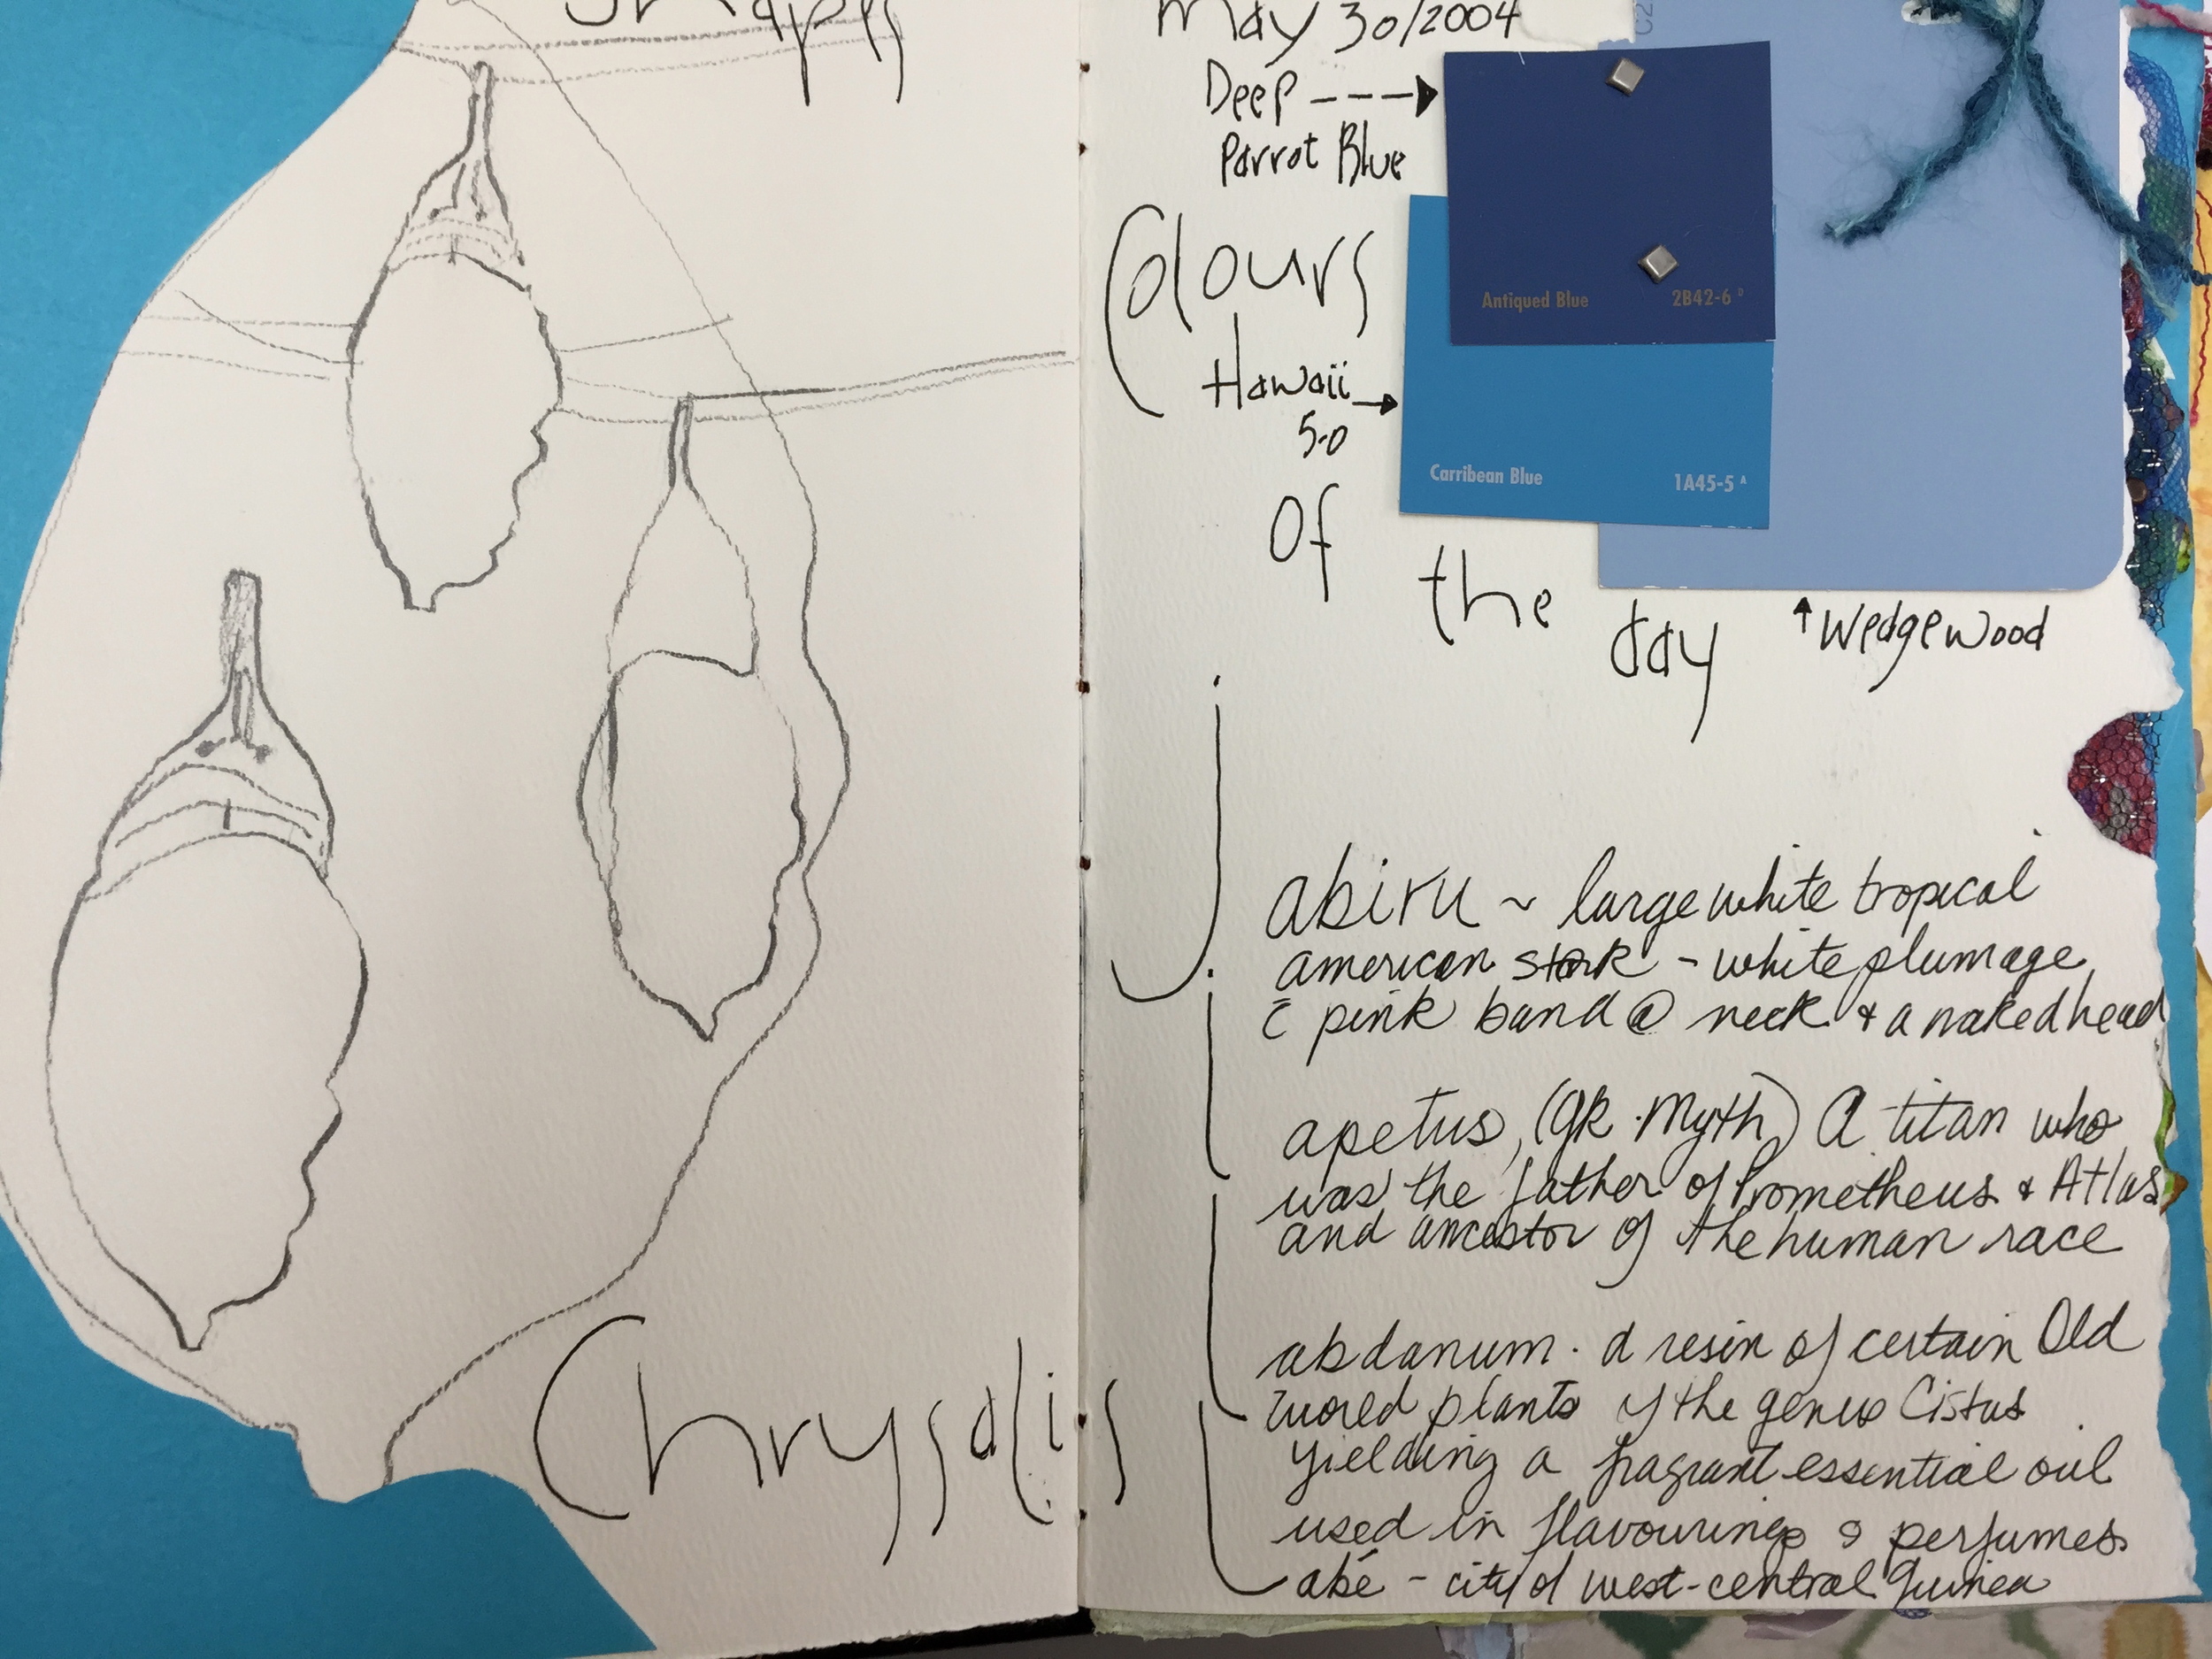 Chrysalis
May 30/2004
Deep
Parrot Blue
Colours
Hawaii
5-0
Of
the
day
Wedgewood
Antiqued Blue 2B42-6 D
Carribean Blue 1A45-5 A
jabiru ~ large white tropical
american stork - white plumage
c̄ pink band @ neck & a naked head
iapetus, (gk. Myth) A titan who
was the father of Prometheus & Atlas
and ancestor of the human race
Labdanum. a resin of certain Old
World plants of the genus Cistus
yielding a fragrant essential oil
used in flavourings & perfumes
Labé - city of west-central Guinea